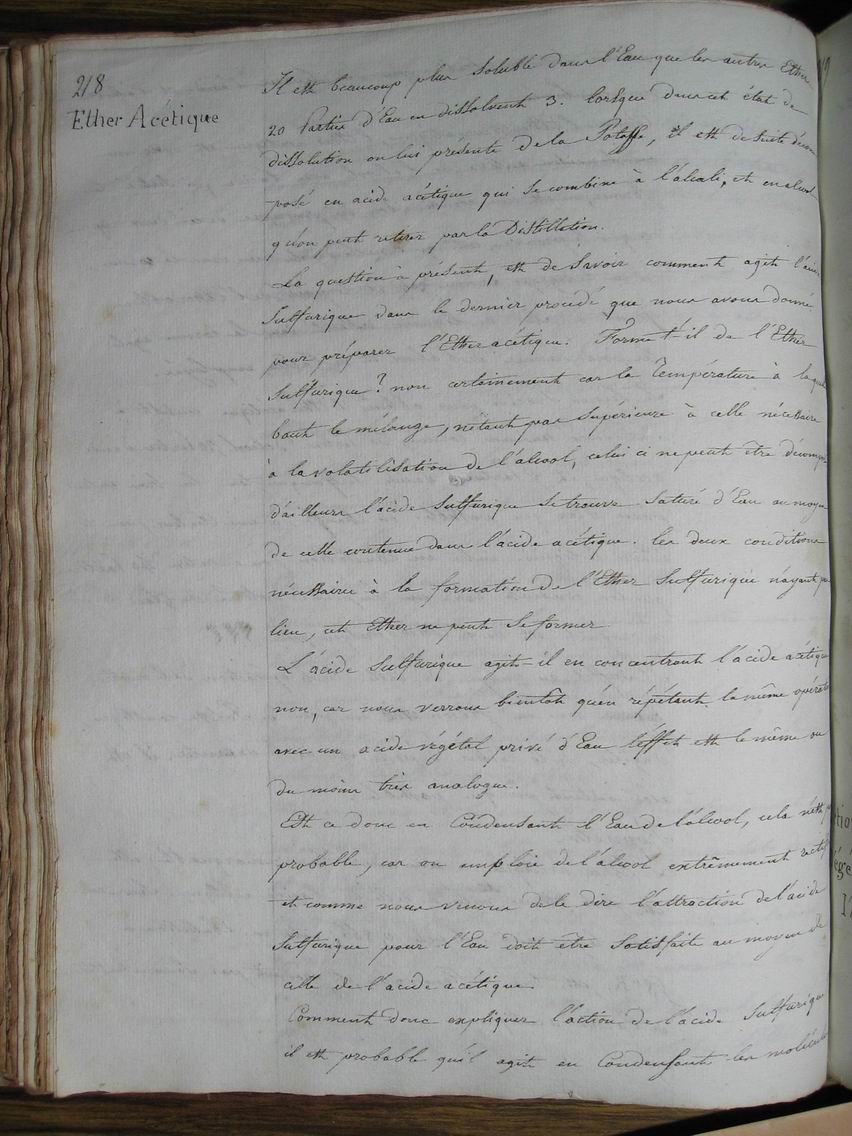 218
Ether Acétique
Il est beaucoup plus Soluble dans l'Eau que les autres Ether
20 Parties d'Eau en dissolvent 3. lorsque dans cet état de
dissolution on lui présente de la Potasse, il est desuite décom
posé en acide acétique qui se combine à l'alcali, et en alcool
qu'on peut retirer par la Distillation.
La question à présent, est de Savoir comment agit l'acide
Sulfurique dans le dernier procédé que nous avons donné
pour préparer l'Ether acétique. Forme t-il de l'Ether
Sulfurique? non certainement car la Température à laquelle
bout le mélange, n'étant pas Supérieure à celle nécessaire
à la volatilisation de l'alcool, celui ci ne peut être décomposé
d'ailleurs l'acide Sulfurique se trouve Saturé d'Eau au moyen
de celle contenue dans l'acide acétique. les deux conditions
nécessaires à la formation de l'Ether Sulfurique n'ayant pas
lieu, cet Ether ne peut se former
L'acide Sulfurique agit-il en concentrant l'acide acétique
non, car nous verrons bientôt qu'en répétant la même opérat
avec un acide végétal privé d'Eau l'effet est le même ou
du moins très analogue.
Est ce donc en Condensant l'Eau de l'alcool, cela n'est
probable, car on emploie de l'alcool extrêmement rectif
et comme nous venons de le dire l'attraction de l'acide
Sulfurique pour l'Eau doit être Satisfaite au moyen de
celle de l'acide acétique
Comment donc expliquer l'action de l'acide Sulfurique
il est probable qu'il agit en Condensant les molécules